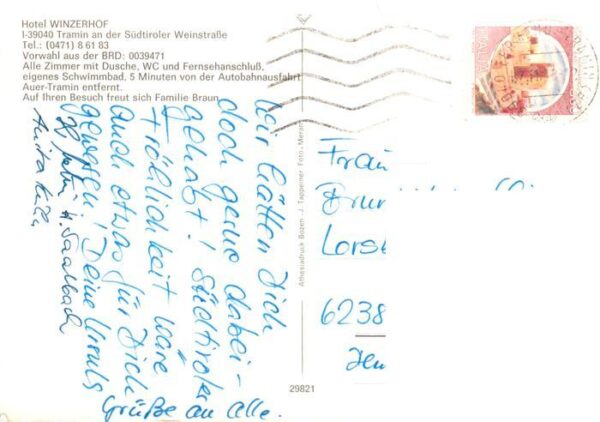 Hotel WINZERHOF
I-39040 Tramin an der Südtiroler Weinstraße
Tel.: (0471) 8 61 83
Vorwahl aus der BRD: 0039471
Alle Zimmer mit Dusche, WC und Fernsehanschluß,
eigenes Schwimmbad, 5 Minuten von der Autobahnausfahrt
Auer-Tramin entfernt.
Auf Ihren Besuch freut sich Familie Braun
Wir hätten Dich
doch gerne dabei-
gehabt! Südtiroler
Fröhlichkeit wäre
auch etwas für Dich
gewesen! Deine Ursula
H. Saalbach
Anita
Grüße an alle.
Athesiadruck Bozen J. Tappeiner Foto-Meran
29821
Frau
6238
ITALIA